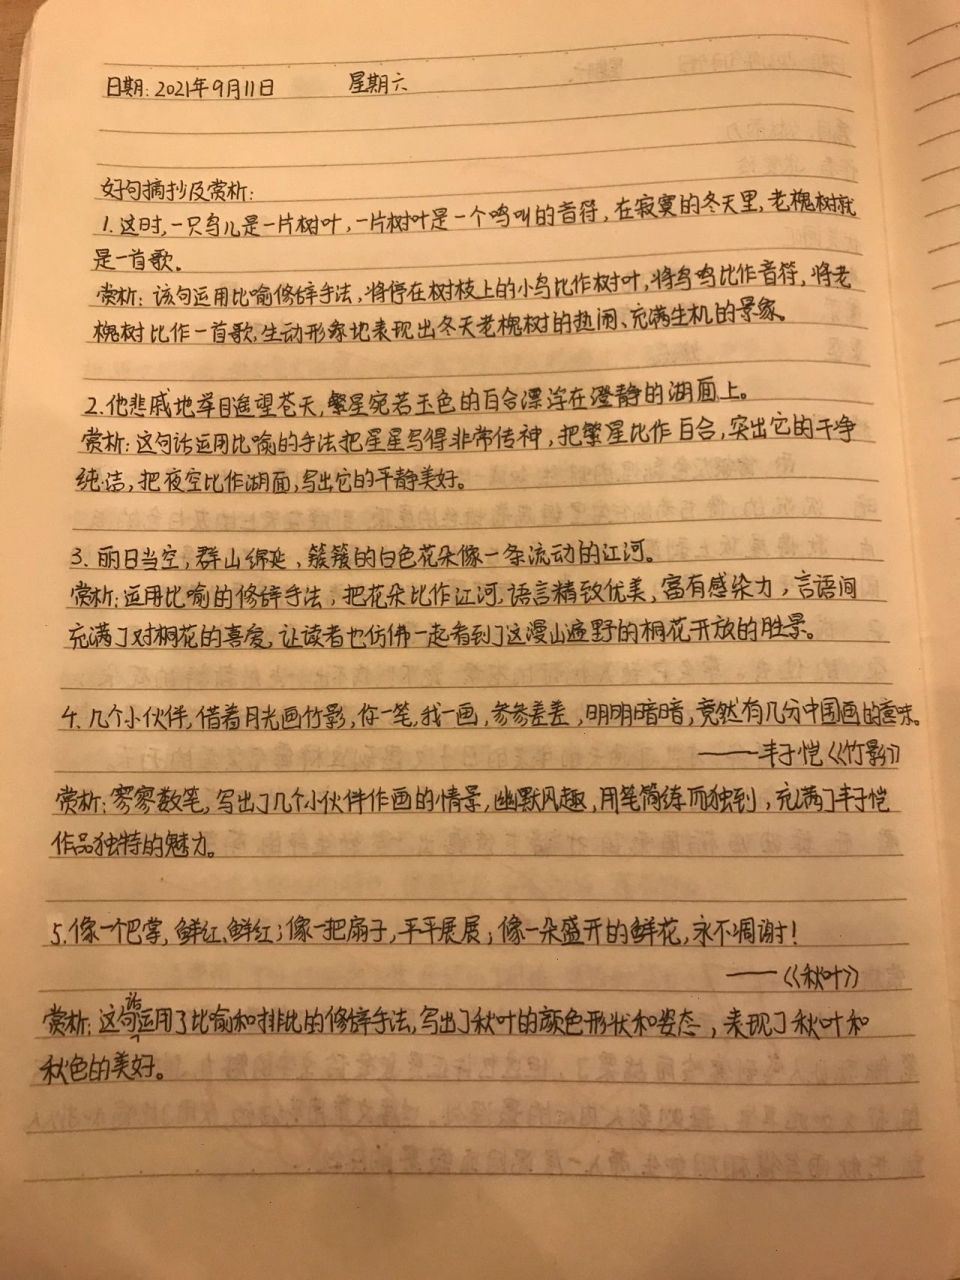 日期: 2021年9月11日 星期六
好句摘抄及赏析:
1. 这时,一只鸟儿是一片树叶,一片树叶是一个鸣叫的音符,在寂寞的冬天里,老槐树就
是一首歌。
赏析: 该句运用比喻修辞手法,将停在树枝上的小鸟比作树叶,将鸟鸣比作音符,将老
槐树比作一首歌,生动形象地表现出冬天老槐树的热闹、充满生机的景象。
2. 他悲戚地举目遥望苍天,繁星宛若玉色的百合漂浮在澄静的湖面上。
赏析: 这句话运用比喻的手法把星星写得非常传神,把繁星比作百合,突出它的干净
纯洁,把夜空比作湖面,写出它的平静美好。
3. 丽日当空,群山绵延,簇簇的白色花朵像一条流动的江河。
赏析: 运用比喻的修辞手法,把花朵比作江河,语言精致优美,富有感染力,言语间
充满了对桐花的喜爱,让读者也仿佛一起看到了这漫山遍野的桐花开放的胜景。
4. 几个小伙伴,借着月光画竹影,你一笔,我一画,参参差差,明明暗暗,竟然有几分中国画的意味。
——丰子恺《竹影》
赏析: 寥寥数笔,写出了几个小伙伴作画的情景,幽默风趣,用笔简练而独到,充满了丰子恺
作品独特的魅力。
5. 像一个巴掌,鲜红、鲜红;像一把扇子,平平展展;像一朵盛开的鲜花,永不凋谢!
——《秋叶》
赏析: 这句话运用了比喻和排比的修辞手法,写出了秋叶的颜色形状和姿态,表现了秋叶和
秋色的美好。